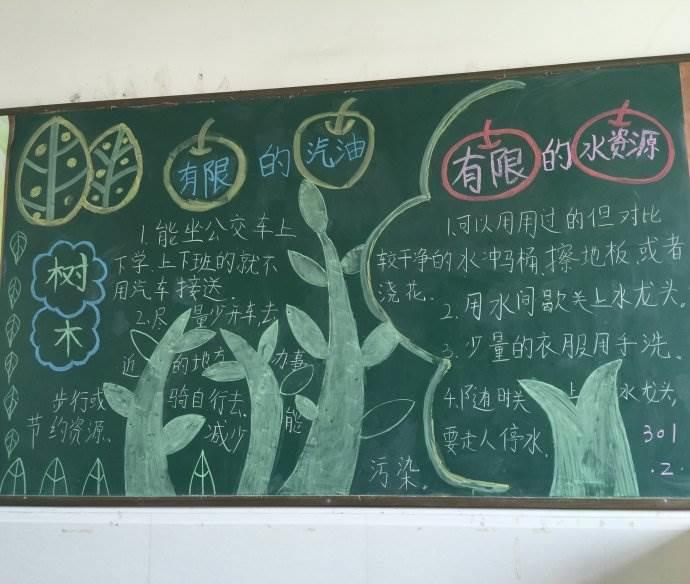 有限的汽油
树木
1.能坐公交车上
下学.上下班的就不
用汽车接送
2.尽量少开车,去
近的地方办事
步行或骑自行去.能
节约资源.减少
污染.
有限的水资源
1.可以用用过的但对比
较干净的水冲马桶.擦地板或者
浇花.
2.用水间歇关上水龙头。
3.少量的衣服用手洗.
4.随时关上水龙头,
要走人停水.
301
.2.